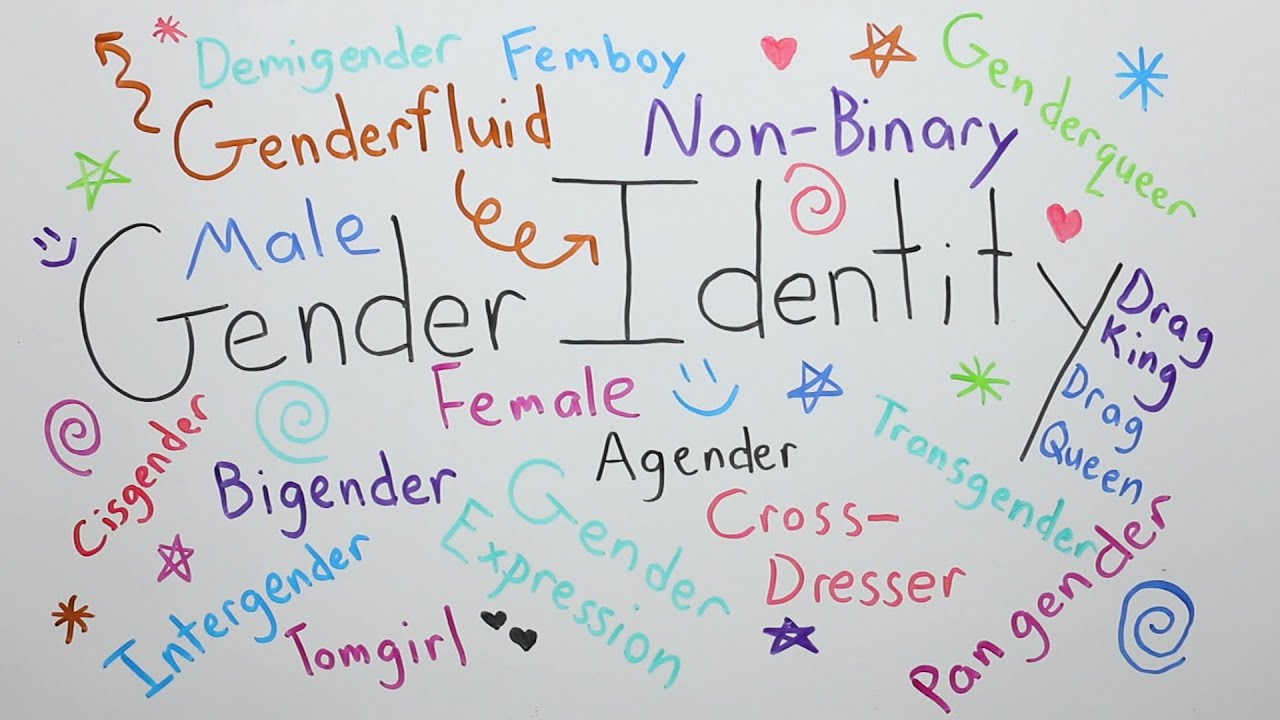 Demigender
Femboy
Genderqueer
Genderfluid
Non-Binary
Male
Gender Identity
Drag
King
Drag
Queen
Female
Transgender
Cisgender
Agender
Bigender
Gender
Expression
Cross-
Dresser
Pangender
Intergender
Tomgirl